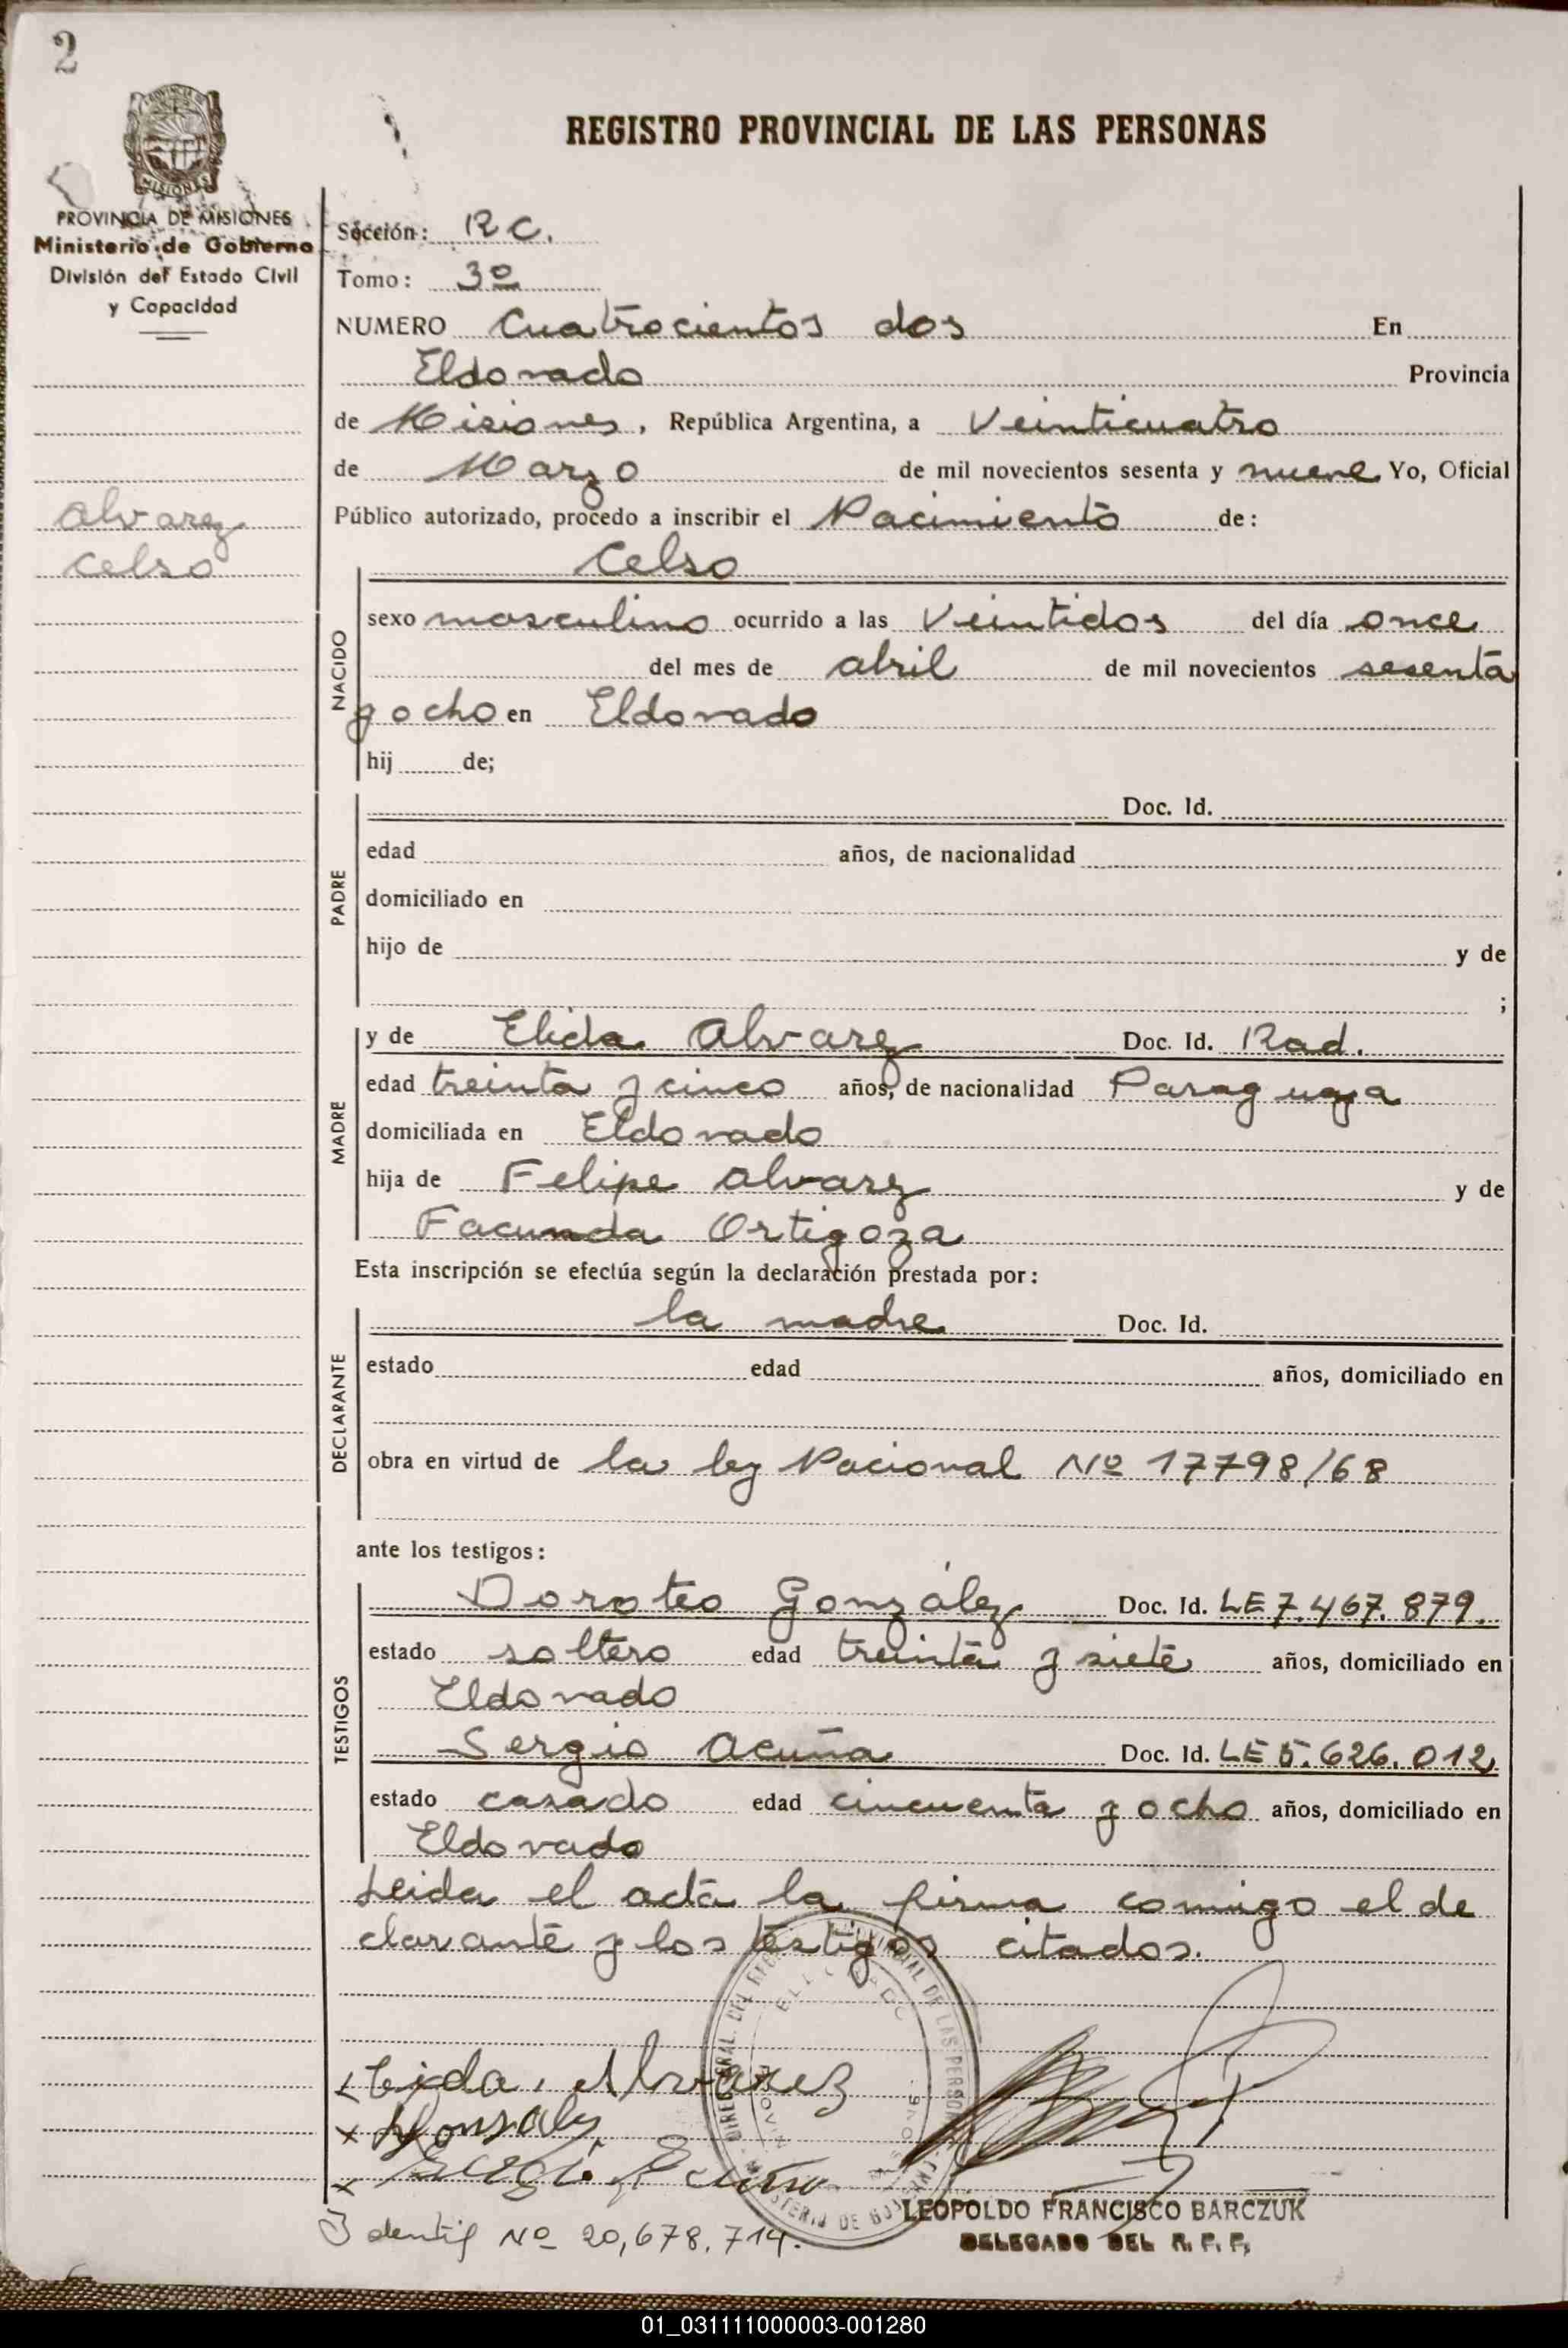 2
MISIONES
PROVINCIA DE MISIONES
Ministerio de Gobierno
División del Estado Civil
y Capacidad
Alvarez
Celso
REGISTRO PROVINCIAL DE LAS PERSONAS
Sección: RC.
Tomo: 3º
NUMERO Cuatrocientos dos En
Eldorado Provincia
de Misiones, República Argentina, a Veinticuatro
de Marzo de mil novecientos sesenta y nueve Yo, Oficial
Público autorizado, procedo a inscribir el Nacimiento de:
Celso
NACIDO
sexo masculino ocurrido a las Veintidos del día once
del mes de abril de mil novecientos sesenta
y ocho en Eldorado
hij de;
PADRE
Doc. Id.
edad años, de nacionalidad
domiciliado en
hijo de y de
;
MADRE
y de Elida Alvarez Doc. Id. Rad.
edad treinta y cinco años, de nacionalidad Paraguaya
domiciliada en Eldorado
hija de Felipe Alvarez y de
Facunda Ortigoza
Esta inscripción se efectúa según la declaración prestada por:
DECLARANTE
la madre Doc. Id.
estado edad años, domiciliado en
obra en virtud de la ley Nacional Nº 17798/68
ante los testigos:
TESTIGOS
Doroteo González Doc. Id. LE 7.467.879.
estado soltero edad treinta y siete años, domiciliado en
Eldorado
Sergio Acuña Doc. Id. LE 5.626.012
estado casado edad cincuenta y ocho años, domiciliado en
Eldorado
Leida el acta la firma comigo el de
clarante y los testigos citados.
Alvarez
LEOPOLDO FRANCISCO BARCZUK
DELEGADO DEL R. P. P.
Identif Nº 20,678.714.
01_031111000003-001280